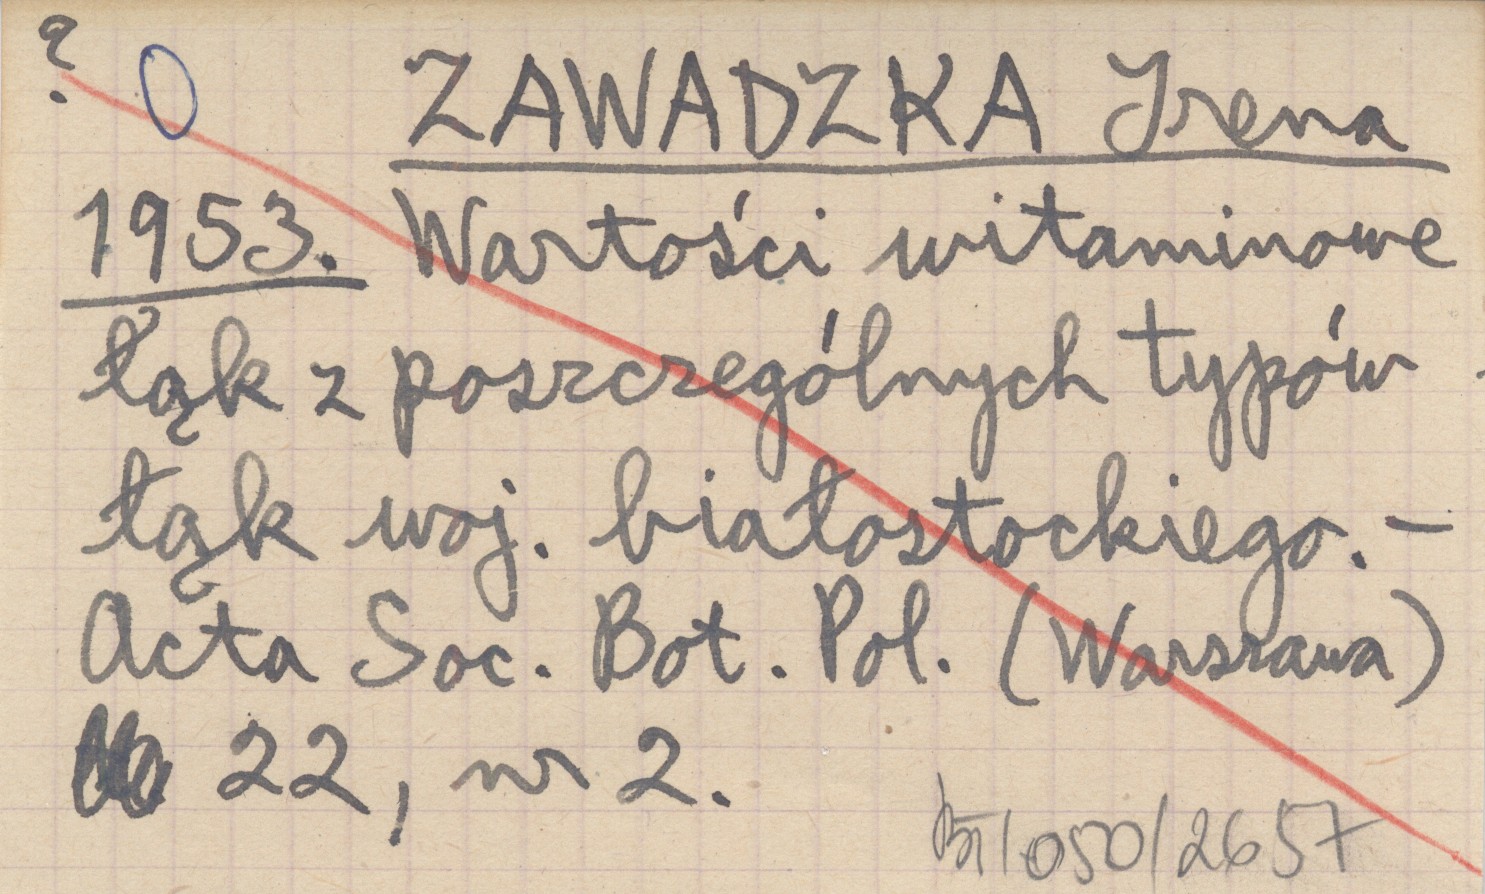 ? 0 ZAWADZKA Irena
1953. Wartości witaminowe
łąk z poszczególnych typów
łąk woj. białostockiego. –
Acta Soc. Bot. Pol. (Warszawa)
22, nr 2.
/050/2657